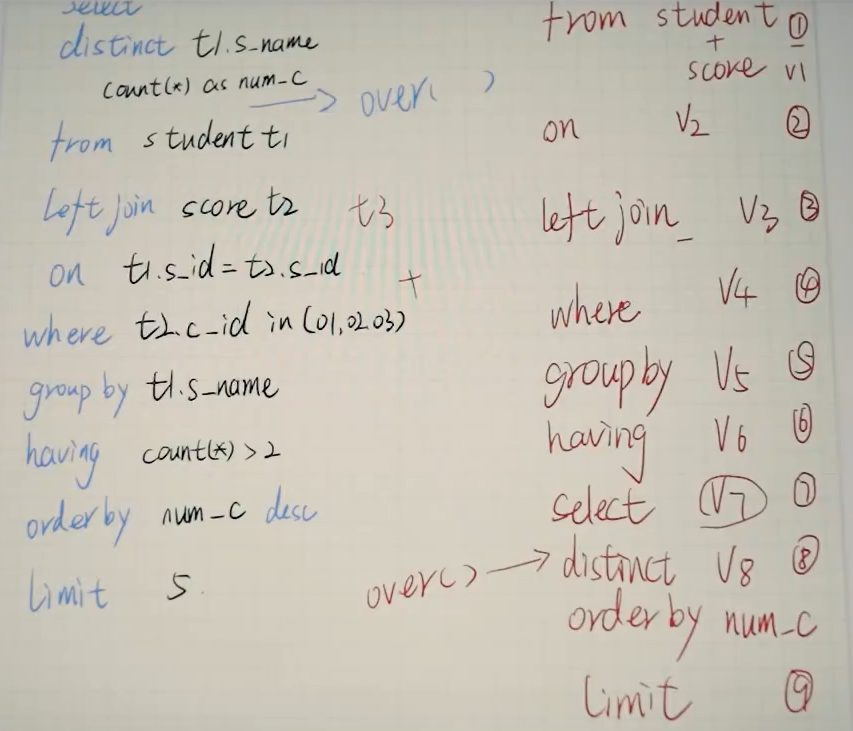 select
distinct t1.s_name
count(*) as num_c
over( )
from student t1
left join score t2 t3
on t1.s_id = t2.s_id +
where t2.c_id in (01,02 03)
group by t1.s_name
having count(*) > 2
order by num_c desc
limit 5
from student ①
+
score V1
on V2 ②
left join_ V3 ③
where V4 ④
group by V5 ⑤
having V6 ⑥
select V7 ⑦
over( ) → distinct V8 ⑧
order by num_c
limit ⑨